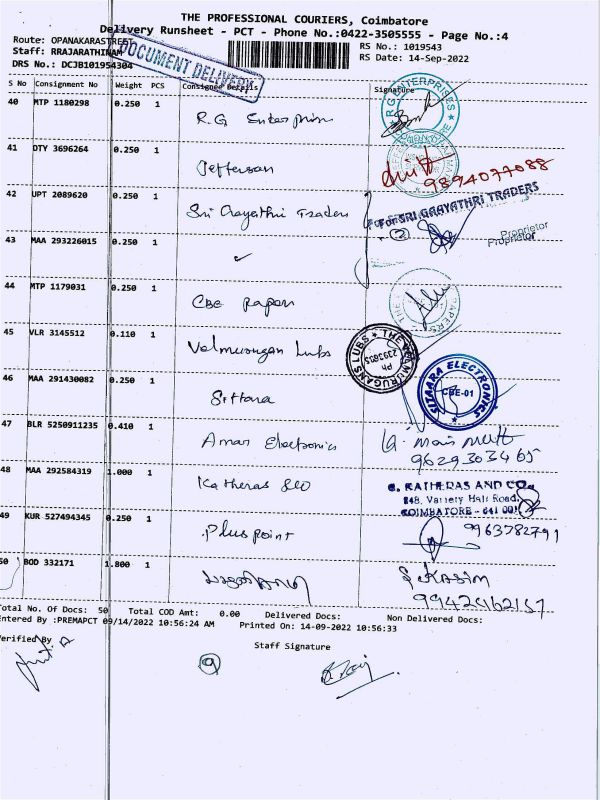 THE PROFESSIONAL COURIERS, Coimbatore
Delivery Runsheet - PCT - Phone No.:0422-3505555 - Page No.:4
Route: OPANAKARASTREET
RS No.: 1019543
Staff: RRAJARATHINAM
RS Date: 14-Sep-2022
DRS No.: DCJB101954304
DOCUMENT DELIVERY
S No Consignment No Weight PCS Consignee Details Signature
40 MTP 1180298 0.250 1 R.G Enterprises
R G ENTERPRISES
41 DTY 3696264 0.250 1 Jefferson
9894077088
42 UPT 2089620 0.250 1 Sri Gayathri Traders
For SRI GAAYATHRI TRADERS
2
Proprietor
Proprietor
43 MAA 293226015 0.250 1
44 MTP 1179031 0.250 1 CBE Papers
45 VLR 3145512 0.110 1 Velmurugan Lubs
THE VELMURUGANS LUBS
Ph 2393805
46 MAA 291430082 0.250 1 Sittara
SITAARA ELECTRONICS
CBE-01
47 BLR 5250911235 0.410 1 Aman Electronics
9629303465
48 MAA 292584319 1.000 1 Katheras &co
C. KATHERAS AND CO.,
248, Variety Hall Road,
COIMBATORE - 641 001
49 KUR 527494345 0.250 1 Plus point
9963782791
50 BOD 332171 1.800 1
S. Kasim
9942462157
Total No. Of Docs: 50 Total COD Amt: 0.00 Delivered Docs: Non Delivered Docs:
Entered By :PREMAPCT 09/14/2022 10:56:24 AM Printed On: 14-09-2022 10:56:33
Verified By
Staff Signature